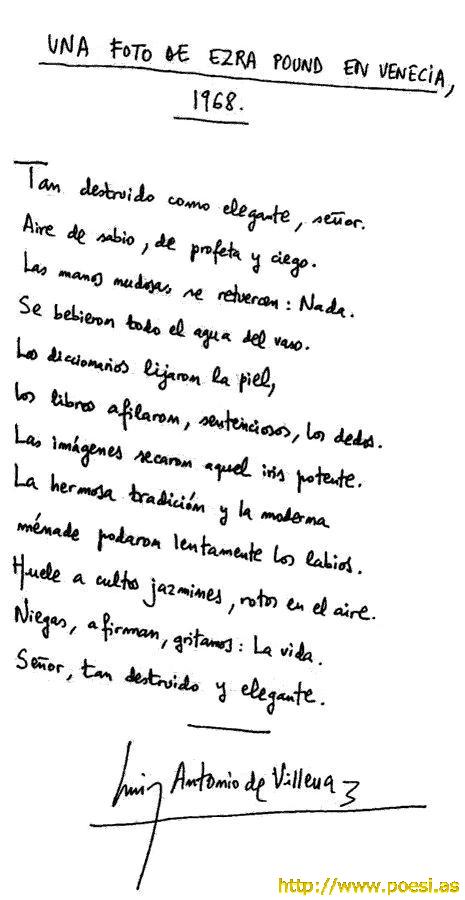 UNA FOTO DE EZRA POUND EN VENECIA,
1968.
Tan destruido como elegante, señor.
Aire de sabio, de profeta y ciego.
Las manos nudosas, se retuercen: Nada.
Se bebieron todo el agua del vaso.
Los diccionarios lijaron la piel,
los libros afilaron, sentenciosos, los dedos.
Las imágenes secaron aquel iris potente.
La hermosa tradición y la moderna
ménade podaron lentamente los labios.
Huele a cultos jazmines, rotos en el aire.
Niegas, afirman, gritamos: La vida.
Señor, tan destruido y elegante.
Luis Antonio de Villena
http://www.poesi.as